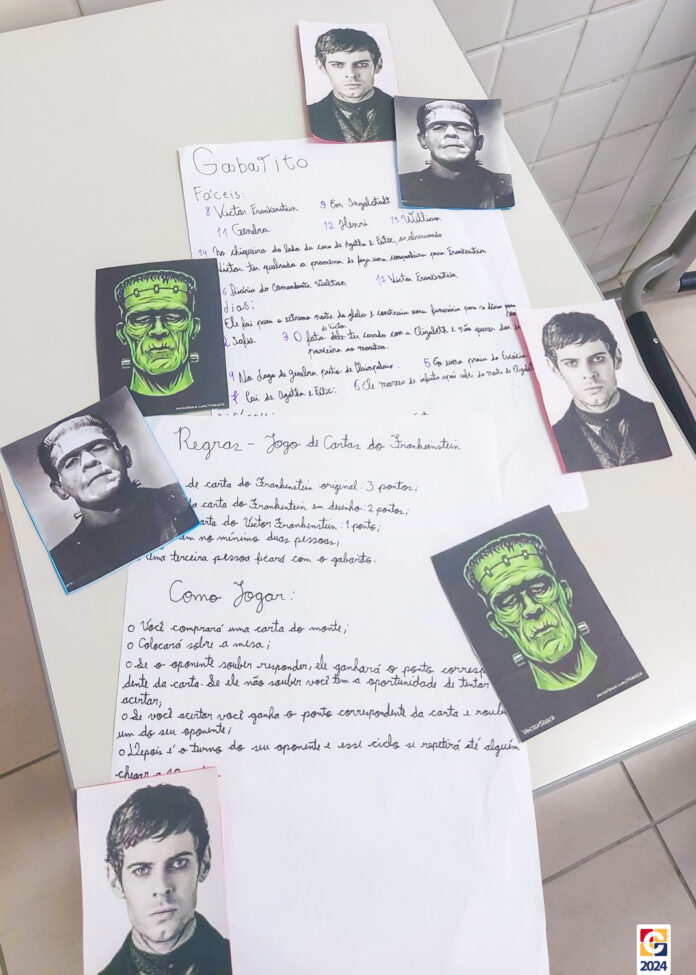 Gabarito
Fáceis:
8 Victor Frankenstein 9 Em Ingolstadt
11 Genebra 12 Henri 13 William
14 No chiqueiro do lado da casa de Agatha e Felix, os observando
Victor ter quebrado a promessa de fazer uma companheira para Frankenstein
6 Diário do Comandante Walton 17 Victor Frankenstein
dias:
Ele foi para o extremo norte do globo e construiu uma funerária para se
2 Safie 3 O fato dele ter casado com a Elizabeth e não querer dar
de Victor
parceira ao monstro.
4 No Lago de Genebra perto de 5 Em uma praia da Escócia
7 Pai de Agatha e Felix. 6 Ele morreu de infarto após saber da morte de Elizabeth
Regras - Jogo de Cartas do Frankeinstein
de carta do Frankenstein original: 3 pontos;
da carta do Frankenstein em desenho: 2 pontos;
carta do Victor Frankenstein: 1 ponto;
am no mínimo duas pessoas;
uma terceira pessoa ficará com o gabarito.
Como Jogar:
o Você comprará uma carta do monte;
o Colocará sobre a mesa;
o Se o oponente souber responder, ele ganhará o ponto corresp
dente da carta. Se ele não souber você tem a oportunidade de tentar
acertar;
o Se você acertar você ganha o ponto correspondente da carta e roub
um do seu oponente;
o Depois é o turno do seu oponente e esse ciclo se repetirá até alguém
chegar a
VectorStock
VectorStock
2024